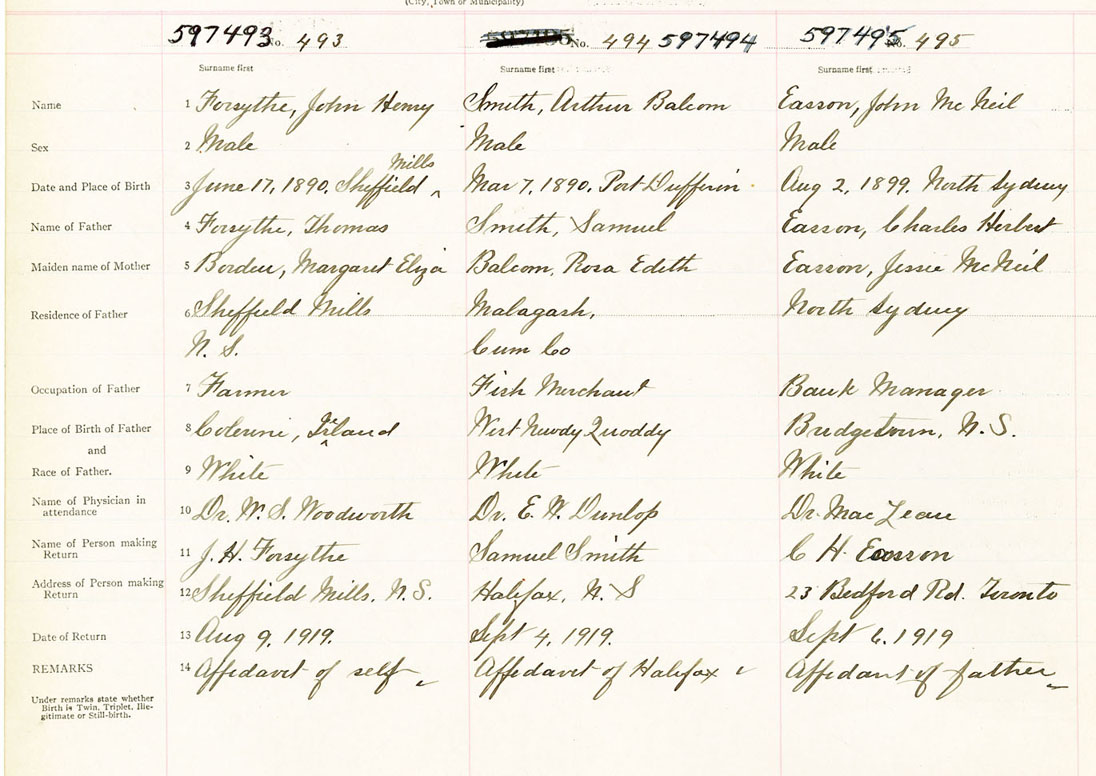 (City, Town or Municipality)
597493 No. 493 No. 494 597494 597495 No. 495
Surname first Surname first Surname first
Name 1 Forsythe, John Henry Smith, Arthur Balcom Easson, John Mc Neil
Sex 2 Male Male Male
Mills
Date and Place of Birth 3 June 17, 1890, Sheffield ^ Mar 7, 1890, Port Dufferin Aug 2, 1899. North Sydney
Name of Father 4 Forsythe, Thomas Smith, Samuel Easson, Charles Herbert
Maiden name of Mother 5 Borden, Margaret Eliza Balcom, Rosa Edith Easson, Jessie McNeil
Residence of Father 6 Sheffield Mills Malagash, North Sydney
N. S. Cum Co
Occupation of Father 7 Farmer Fish Merchant Bank Manager
Place of Birth of Father 8 Island West Quoddy Bridgetown, N.S.
and
Race of Father. 9 White White White
Name of Physician in
attendance 10 Dr. W. S. Woodworth Dr. E. W. Dunlop Dr. Mac Lean
Name of Person making
Return 11 J. H. Forsythe Samuel Smith C H. Easson
Address of Person making
Return 12 Sheffield Mills, N.S. Halifax, N. S 23 Bedford Rd. Toronto
Date of Return 13 Aug 9, 1919. Sept 4, 1919. Sept 6, 1919
REMARKS 14 Affidavit of self Affidavit of Halifax Affidavit of father
Under remarks state whether
Birth is Twin, Triplet, Ille-
gitimate or Still-birth.